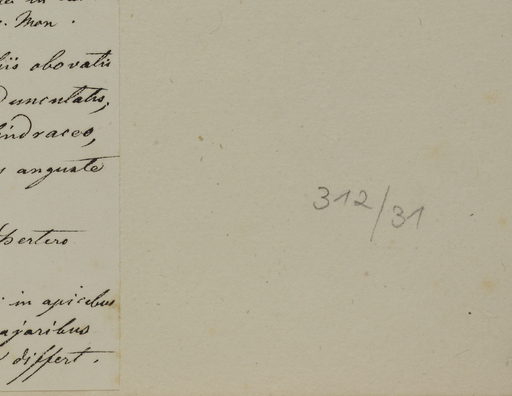 Mon.
obovatis
dunculatis,
indraceo,
anguste
in apicibus
ajoribus
differt.
312/31